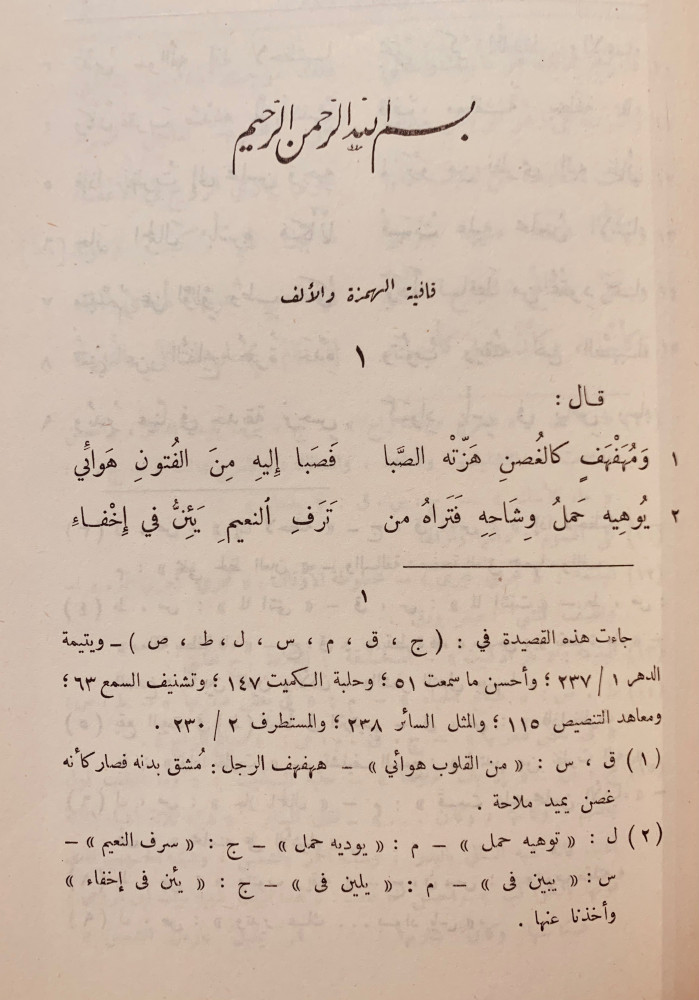 بسم الله الرحمن الرحيم
قافية الهمزة والألف
١
قـال :
١ وَمُهَفْهَفٍ كالغُصنِ هَزّتْه الصَّبا فَصَبا إليهِ مِنَ الفُتونِ هَوائي
٢ يُوهِيه حَملُ وِشَاحِهِ فَتَراهُ من تَرَفِ النعيمِ يَئِنُّ في إِخْفـاءِ
١
جاءت هذه القصيدة في : ( ج ، ق ، م ، س ، ل ، ط ، ص ) ـ ويتيمة
الدهر ١ / ٢٣٧ ؛ وأحسن ما سمعت ٥١ ؛ وحلبة الكميت ١٤٧ ؛ وتشنيف السمع ٦٣ ؛
ومعاهد التنصيص ١١٥ ؛ والمثل السائر ٢٣٨ ؛ والمستطرف ٢ / ٢٣٠ .
( ١ ) ق ، س : « من القلوب هوائي » – ههفهف الرجل : مُشق بدنه فصار كأنه
غصن يميد ملاحة .
( ٢ ) ل : « توهيه حمل » – م : « يوديه حمل » – ج : « سرف النعيم » –
س : « يبين فى » – م : « يلين فى » – ج : « يئن فى إخفاء »
وأخذنا عنها .